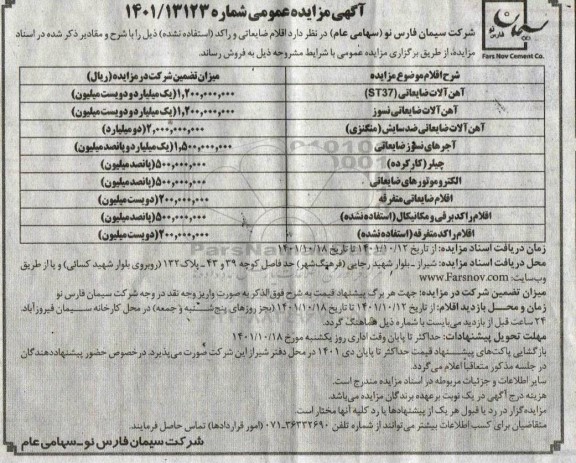 آگهی مزایده عمومی شماره ۱۴۰۱/۱۳۱۲۳
سیمان فارس نو
Fars Nov Cement Co.
شرکت سیمان فارس نو (سهامی عام) در نظر دارد اقلام ضایعاتی و راکد (استفاده نشده) ذیل را با شرح و مقادیر ذکر شده در اسناد
مزایده، از طریق برگزاری مزایده عمومی با شرایط مشروحه ذیل به فروش رساند.
شرح اقلام موضوع مزایده میزان تضمین شرکت در مزایده (ریال)
آهن آلات ضایعاتی (ST37) ۱,۲۰۰,۰۰۰,۰۰۰ (یک میلیارد و دویست میلیون)
آهن آلات ضایعاتی نسوز ۱,۲۰۰,۰۰۰,۰۰۰ (یک میلیارد و دویست میلیون)
آهن آلات ضایعاتی ضد سایش (منگنزی) ۲,۰۰۰,۰۰۰,۰۰۰ (دو میلیارد)
آجرهای نسوز ضایعاتی ۱,۵۰۰,۰۰۰,۰۰۰ (یک میلیارد و پانصد میلیون)
چیلر (کارکرده) ۵۰۰,۰۰۰,۰۰۰ (پانصد میلیون)
الکتروموتورهای ضایعاتی ۵۰۰,۰۰۰,۰۰۰ (پانصد میلیون)
اقلام ضایعاتی متفرقه ۲۰۰,۰۰۰,۰۰۰ (دویست میلیون)
اقلام راکد برقی و مکانیکال (استفاده نشده) ۵۰۰,۰۰۰,۰۰۰ (پانصد میلیون)
اقلام راکد متفرقه (استفاده نشده) ۲۰۰,۰۰۰,۰۰۰ (دویست میلیون)
زمان دریافت اسناد مزایده: از تاریخ ۱۴۰۱/۱۰/۱۲ تا تاریخ ۱۴۰۱/۱۰/۱۸
محل دریافت اسناد مزایده: شیراز ـ بلوار شهید رجایی (فرهنگ‌شهر) حد فاصل کوچه ۳۹ و ۴۳ ـ پلاک ۱۳۲ (روبروی بلوار شهید کسائی) و یا از طریق
وب‌سایت: www.Farsnov.com
میزان تضمین شرکت در مزایده: جهت هر برگ پیشنهاد قیمت به شرح فوق‌الذکر به صورت واریز وجه نقد در وجه شرکت سیمان فارس نو
زمان و محل بازدید اقلام: از تاریخ ۱۴۰۱/۱۰/۱۲ تا تاریخ ۱۴۰۱/۱۰/۱۸ (بجز روزهای پنج‌شنبه و جمعه) در محل کارخانه سیمان فیروزآباد.
۲۴ ساعت قبل از بازدید می‌بایست با شماره ذیل هماهنگ گردد.
مهلت تحویل پیشنهادات: حداکثر تا پایان وقت اداری روز یکشنبه مورخ ۱۴۰۱/۱۰/۱۸
بازگشایی پاکت‌های پیشنهاد قیمت حداکثر تا پایان دی ۱۴۰۱ در محل دفتر شیراز این شرکت صورت می‌پذیرد. در خصوص حضور پیشنهاددهندگان
در جلسه مذکور متعاقباً اعلام می‌گردد.
سایر اطلاعات و جزئیات مربوطه در اسناد مزایده مندرج است.
هزینه درج آگهی در یک نوبت برعهده برندگان مزایده می‌باشد.
مزایده‌گزار در رد یا قبول هر یک از پیشنهادها یا رد کلیه آنها مختار است.
متقاضیان برای کسب اطلاعات بیشتر می‌توانند از شماره تلفن ۳۶۳۳۲۶۹۰-۰۷۱ (امور قراردادها) تماس حاصل فرمایند.
شرکت سیمان فارس نو ـ سهامی عام